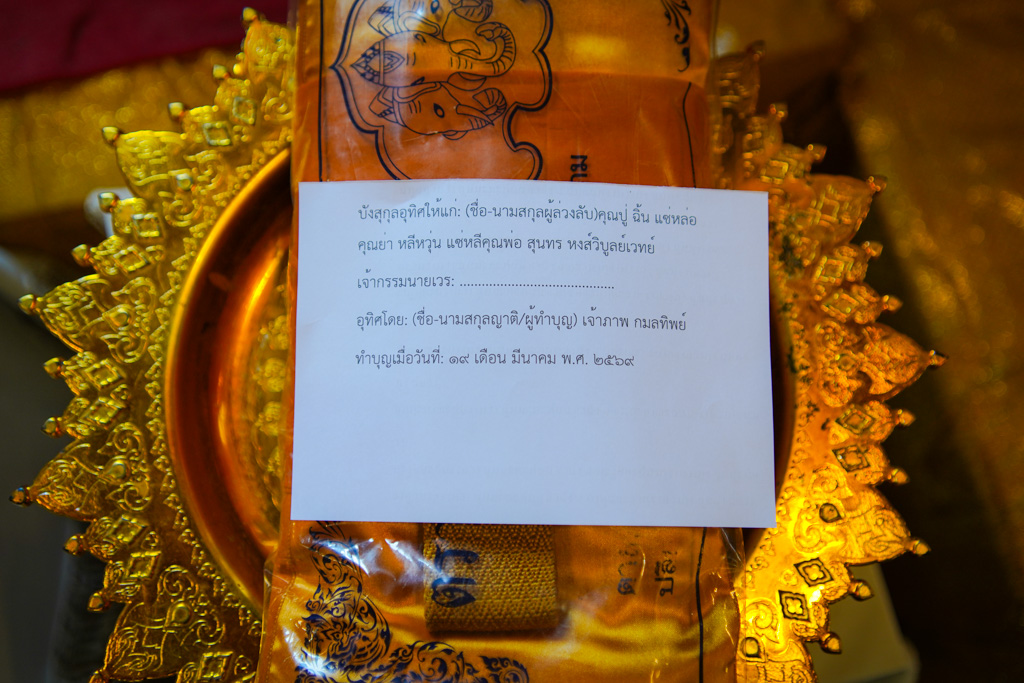 บังสุกุลอุทิศให้แก่: (ชื่อ-นามสกุลผู้ล่วงลับ)คุณปู่ ฉิ้น แซ่หล่อ
คุณย่า หลีหวุ่น แซ่หลีคุณพ่อ สุนทร หงส์วิบูลย์เวทย์
เจ้ากรรมนายเวร: ..........................................
อุทิศโดย: (ชื่อ-นามสกุลญาติ/ผู้ทำบุญ) เจ้าภาพ กมลทิพย์
ทำบุญเมื่อวันที่: ๑๙ เดือน มีนาคม พ.ศ. ๒๕๖๙